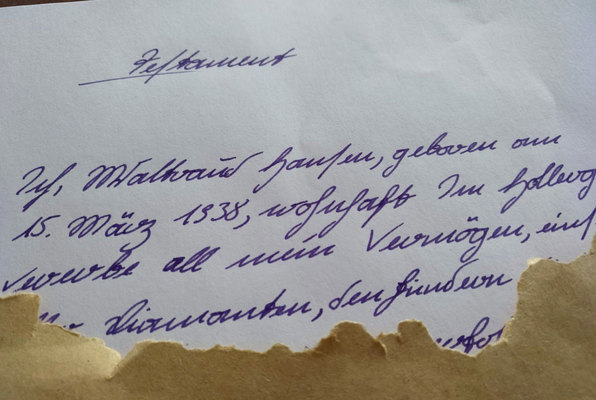 Testament
Ich, Waltraud Hansen, geboren am
15. März 1938, wohnhaft Im Holweg
vererbe all mein Vermögen, einsch
Diamanten, den Findern